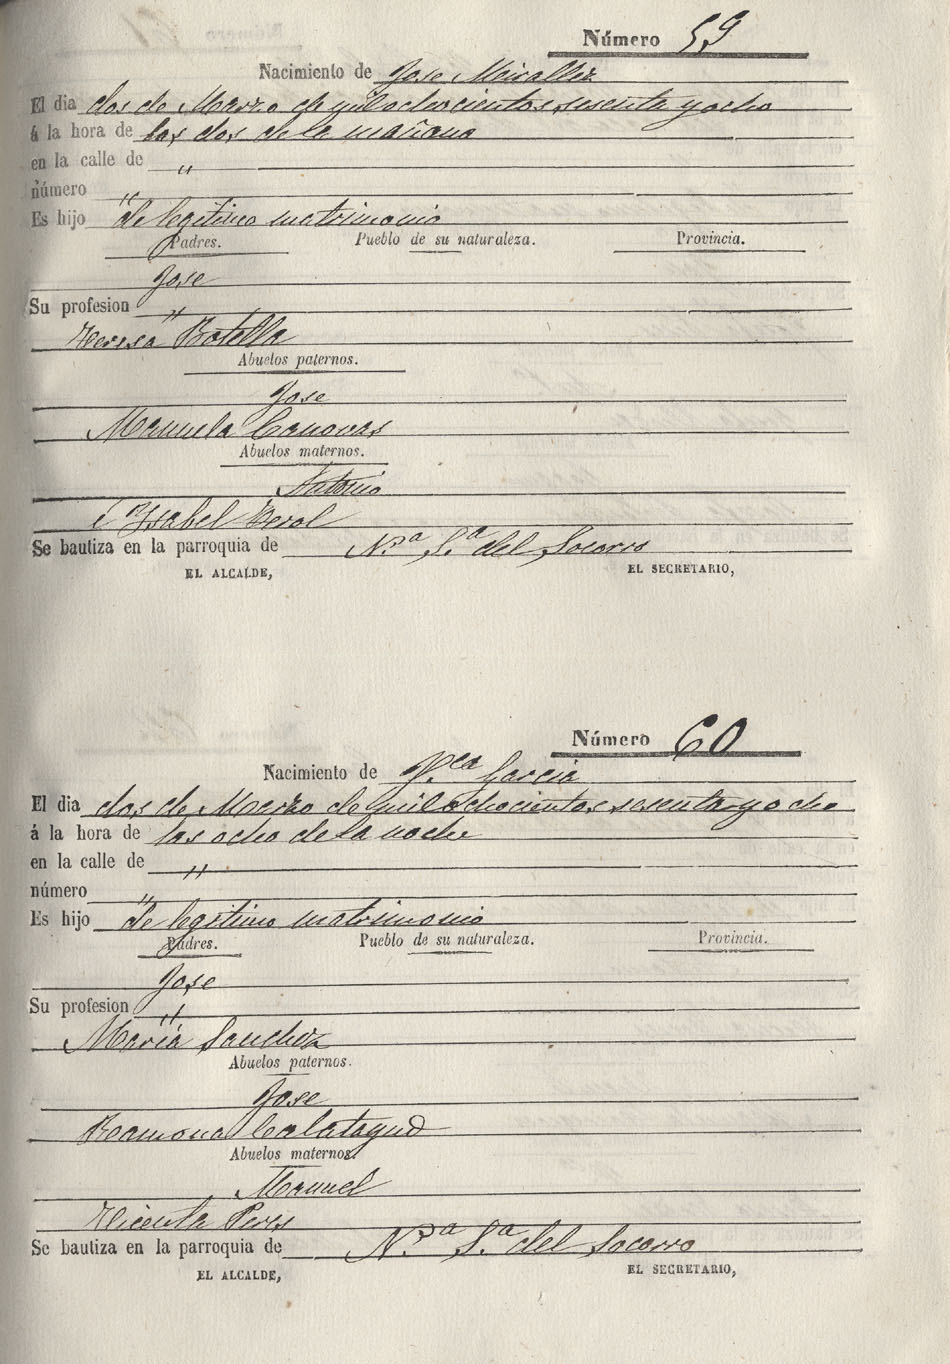 Número 59
Nacimiento de Jose Miralles
El dia dos de Marzo de mil ochocientos sesenta y ocho
á la hora de las dos de la mañana
en la calle de "
número "
Es hijo de legitimo matrimonio
Padres. Pueblo de su naturaleza. Provincia.
Jose
Su profesion "
Teresa Botella
Abuelos paternos.
Jose
Manuela Canovas
Abuelos maternos.
Antonio
é Ysabel
Se bautiza en la parroquia de N.ª S.ª del Socorro
EL ALCALDE, EL SECRETARIO,
Número 60
Nacimiento de Garcia
El dia dos de Marzo de mil ochocientos sesenta y ocho
á la hora de las ocho de la noche
en la calle de "
número "
Es hijo de legitimo matrimonio
Padres. Pueblo de su naturaleza. Provincia.
Jose
Su profesion "
Maria Sanchez
Abuelos paternos.
Jose
Ramona Calatayud
Abuelos maternos.
Manuel
Vicenta Peres
Se bautiza en la parroquia de N.ª S.ª del Socorro
EL ALCALDE, EL SECRETARIO,